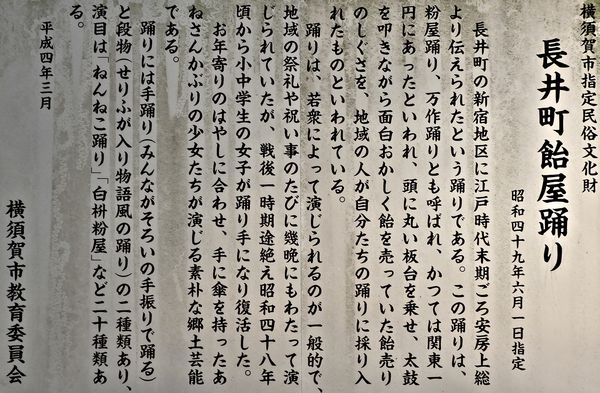 横須賀市指定民俗文化財
長井町飴屋踊り
昭和四十九年六月一日指定
長井町の新宿地区に江戸時代末期ごろ安房上総
より伝えられたという踊りである。この踊りは、
粉屋踊り、万作踊りとも呼ばれ、かつては関東一
円にあったといわれ、頭に丸い板台を乗せ、太鼓
を叩きながら面白おかしく飴を売っていた飴売り
のしぐさを、地域の人が自分たちの踊りに採り入
れたものといわれている。
踊りは、若衆によって演じられるのが一般的で、
地域の祭礼や祝い事のたびに幾晩にもわたって演
じられていたが、戦後一時期途絶え昭和四十八年
頃から小中学生の女子が踊り手になり復活した。
お年寄りのはやしに合わせ、手に傘を持ったあ
ねさんかぶりの少女たちが演じる素朴な郷土芸能
である。
踊りには手踊り(みんながそろいの手振りで踊る)
と段物(せりふが入り物語風の踊り)の二種類あり、
演目は「ねんねこ踊り」「白枡粉屋」など二十種類あ
る。
平成四年三月
横須賀市教育委員会